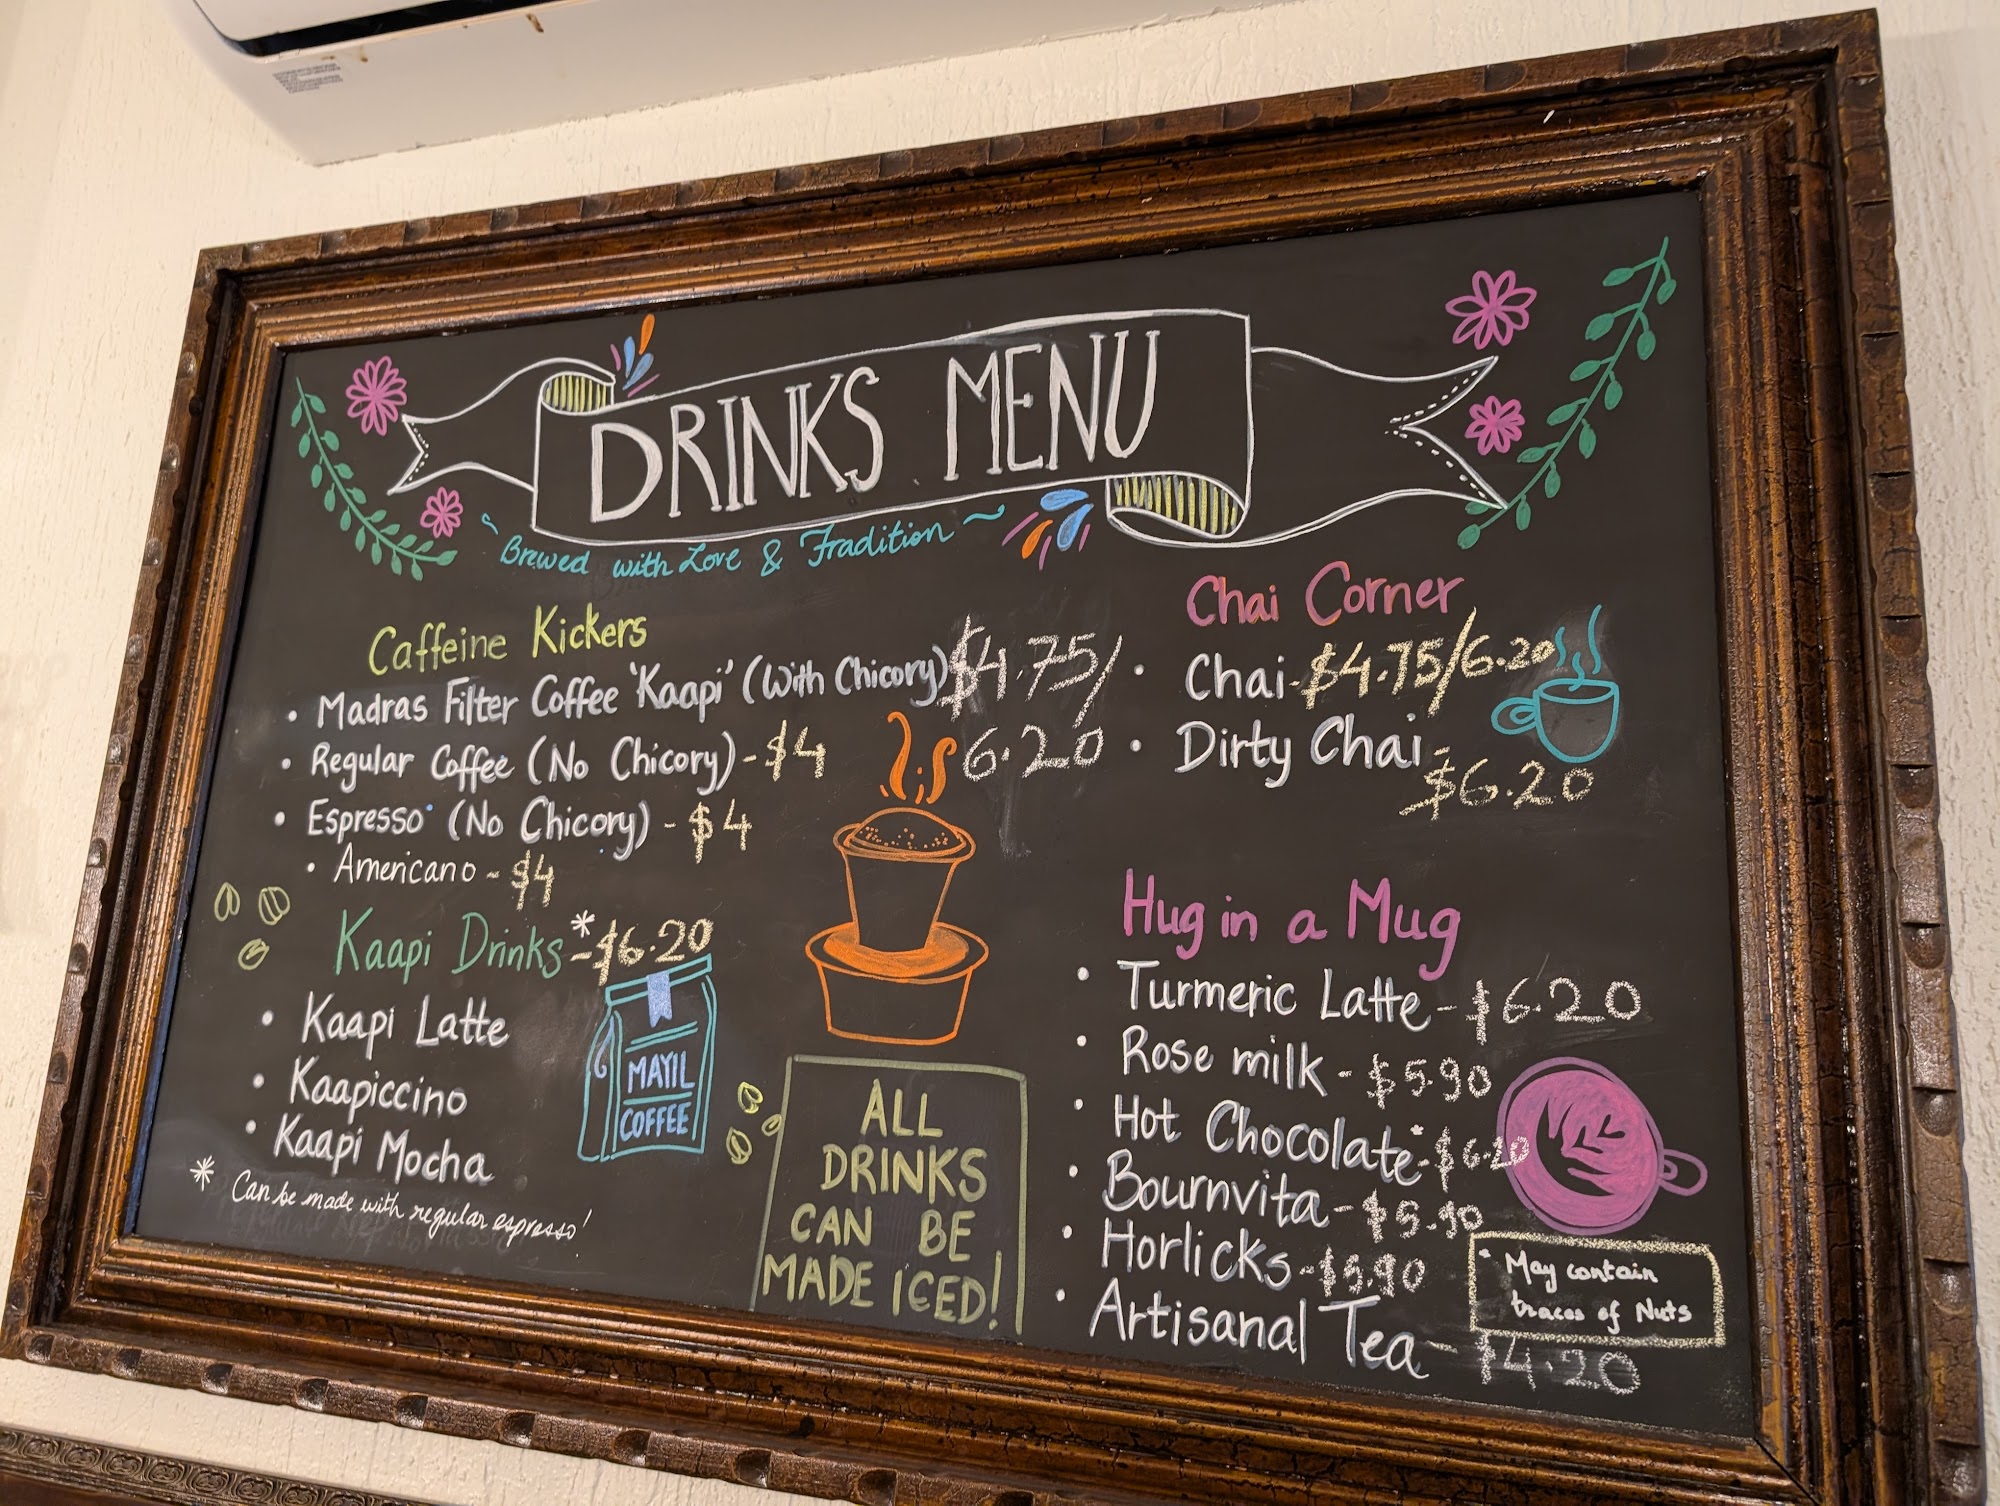 DRINKS MENU
~ Brewed with Love & Tradition ~
Caffeine Kickers
• Madras Filter Coffee 'Kaapi' (With Chicory) $4.75/
6.20
• Regular Coffee (No Chicory) - $4
• Espresso (No Chicory) - $4
• Americano - $4
Kaapi Drinks* - $6.20
• Kaapi Latte
• Kaapiccino
• Kaapi Mocha
* Can be made with regular espresso!
MAYIL
COFFEE
ALL
DRINKS
CAN BE
MADE ICED!
Chai Corner
• Chai - $4.75/6.20
• Dirty Chai -
$6.20
Hug in a Mug
• Turmeric Latte - $6.20
• Rose milk - $5.90
• Hot Chocolate* - $6.20
• Bournvita - $5.90
• Horlicks - $5.90
• Artisanal Tea - $4.20
* May contain
traces of Nuts